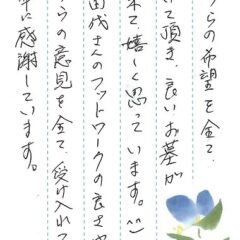 らの希望を全て
けて頂き、良いお墓が
来て嬉しく思っています。^^)
田代さんのフットワークの良さや
らの意見を全て受け入れて
に感謝しています。